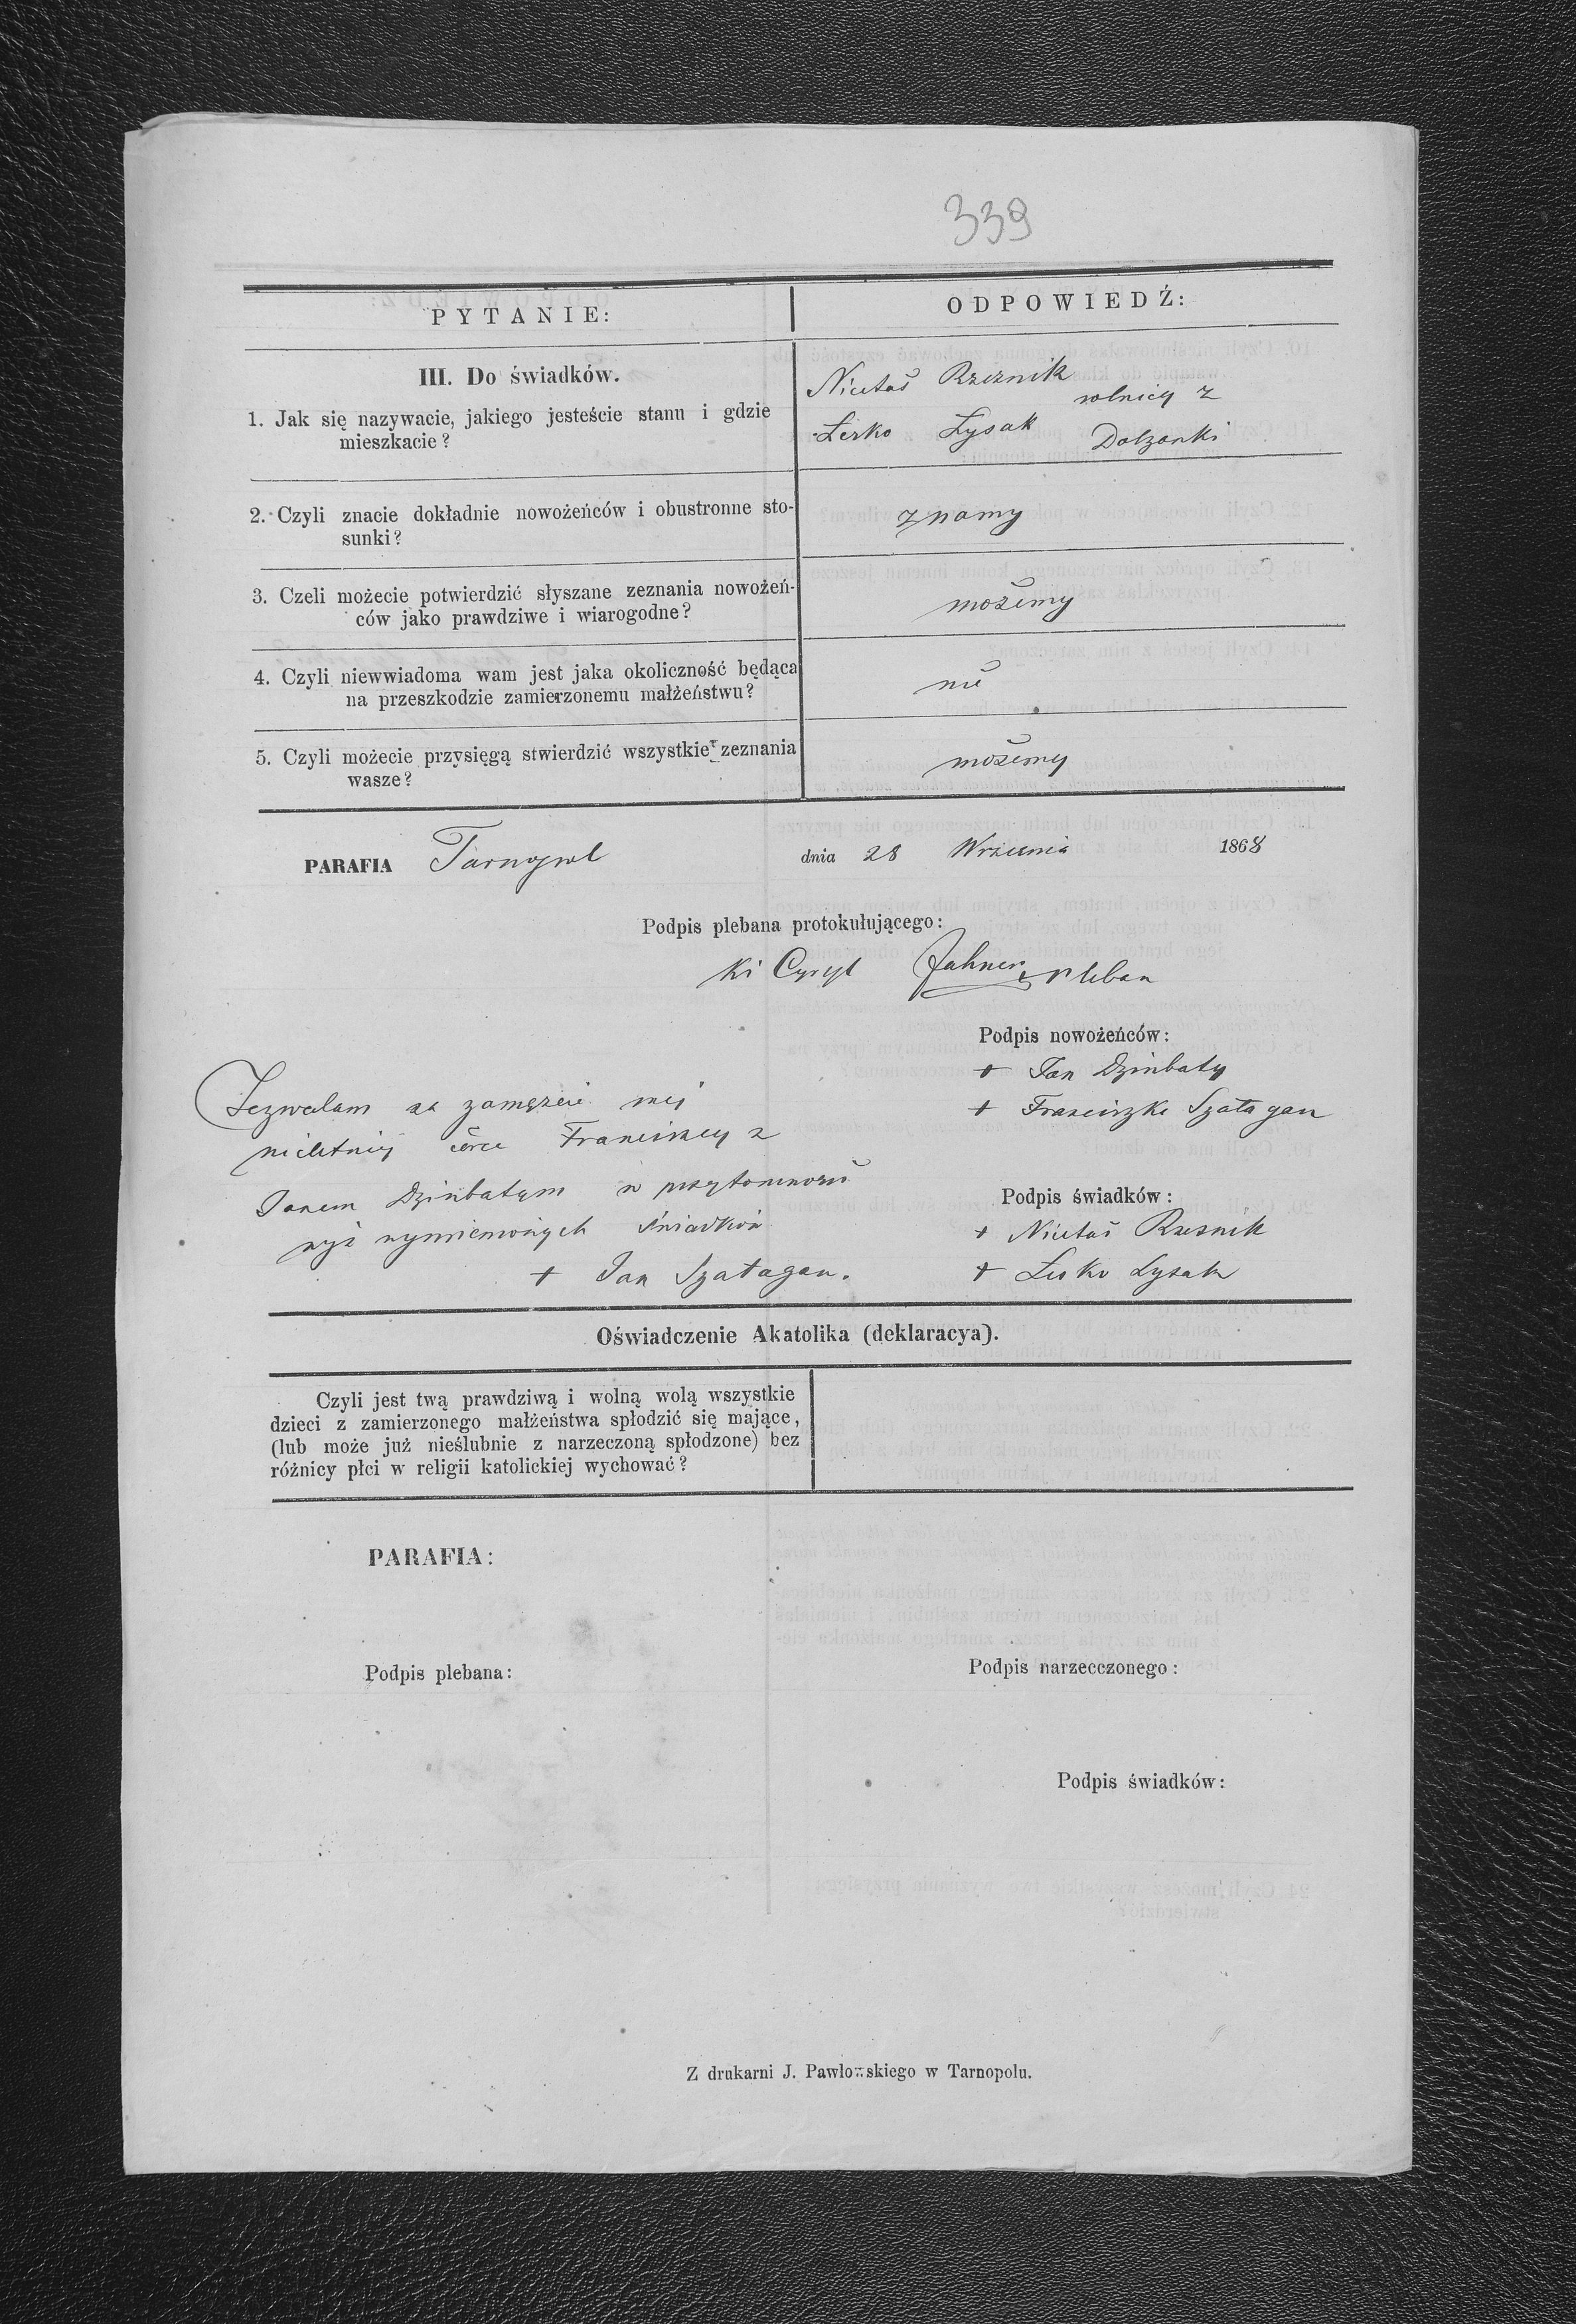 339
PYTANIE:
ODPOWIEDŹ:
III. Do świadków.
1. Jak się nazywacie, jakiego jesteście stanu i gdzie
mieszkacie?
Nicetaś Rzeznik
rolnicy z
Lesko Łysak Dołzanki
2. Czyli znacie dokładnie nowożeńców i obustronne sto-
sunki?
znamy
3. Czeli możecie potwierdzić słyszane zeznania nowożeń-
ców jako prawdziwe i wiarogodne?
możemy
4. Czyli niewwiadoma wam jest jaka okoliczność będąca
na przeszkodzie zamierzonemu małżeństwu?
nie
5. Czyli możecie przysięgą stwierdzić wszystkie zeznania
wasze?
możemy
PARAFIA Tarnopol dnia 28 Września 1868
Podpis plebana protokułującego:
Cyryl Jahner pleban
Podpis nowożeńców:
+ Jan Dziubaty
+ Franciszka Szatagan
Zezwalam na zamęzcie mej
nieletniej córce Franciszcy z
Janem Dziubatym w przytomnosci
wyż wymienionych świadków
+ Jan Szatagan.
Podpis świadków:
+ Nicetaś Rzesnik
+ Lesko Łysak
Oświadczenie Akatolika (deklaracya).
Czyli jest twą prawdziwą i wolną wolą wszystkie
dzieci z zamierzonego małżeństwa spłodzić się mające,
(lub może już nieślubnie z narzeczoną spłodzone) bez
różnicy płci w religii katolickiej wychować?
PARAFIA:
Podpis plebana:
Podpis narzecczonego:
Podpis świadków:
Z drukarni J. Pawłowskiego w Tarnopolu.